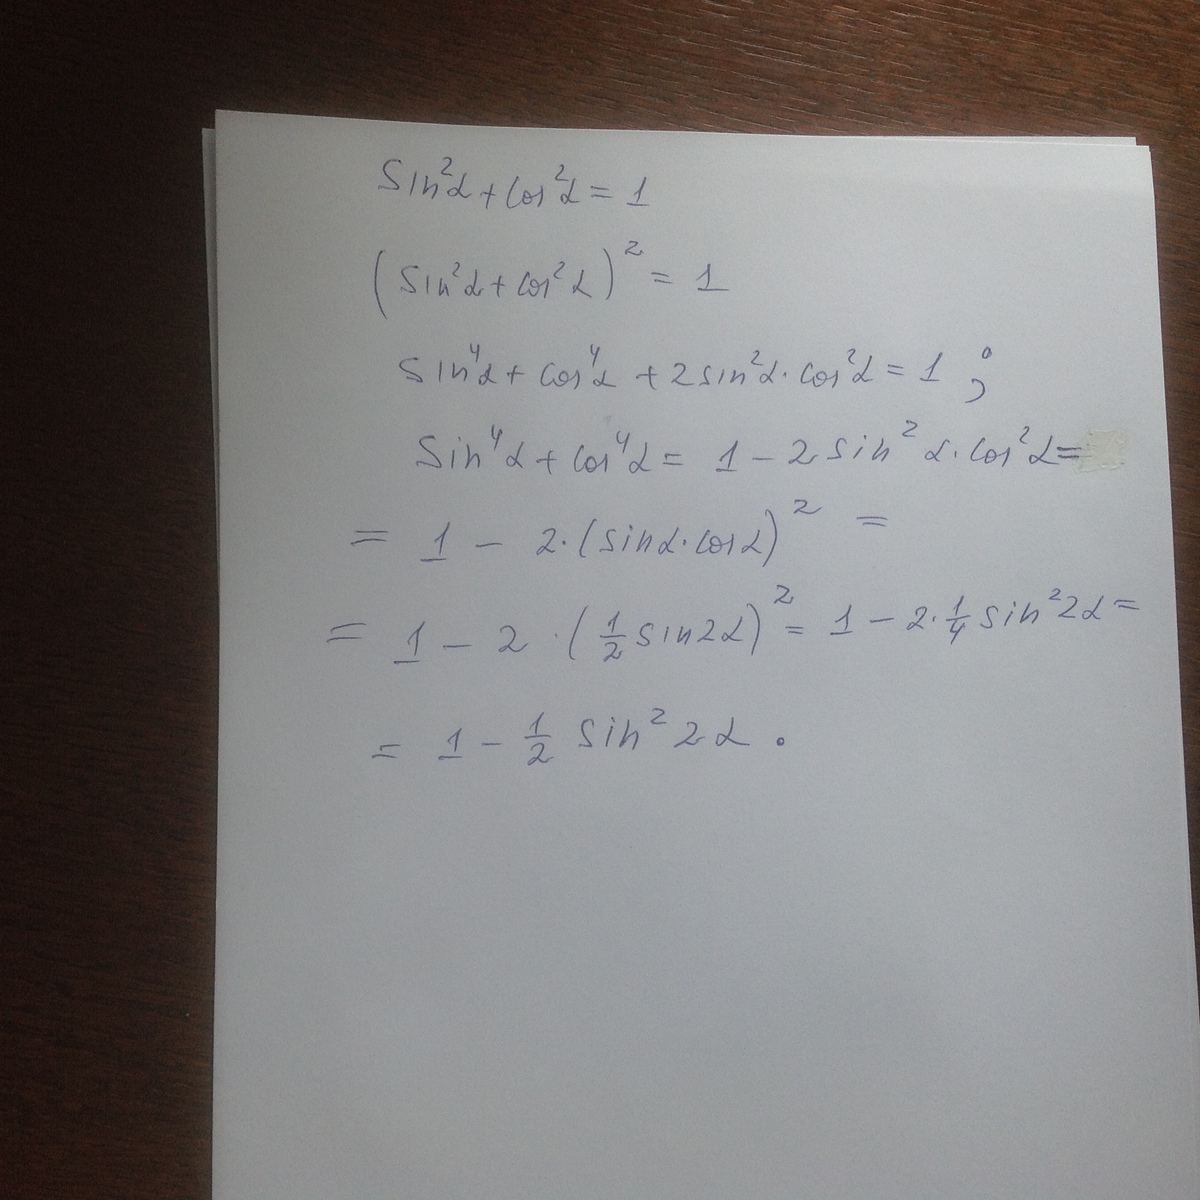 Sin²α + cos²α = 1
(Sin²α + cos²α)² = 1
Sin⁴α + cos⁴α + 2sin²α · cos²α = 1 ;
Sin⁴α + cos⁴α = 1 – 2 sin²α · cos²α =
= 1 – 2·(sinα·cosα)² =
= 1 – 2 · (1/2 sin2α)² = 1 – 2·1/4 sin²2α =
= 1 – 1/2 sin²2α .